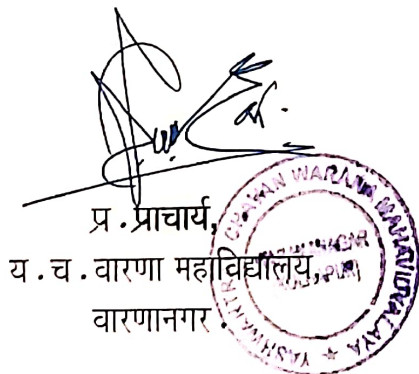 प्र . प्राचार्य,
य . च . वारणा महाविद्यालय,
वारणानगर .
YASHWANTRAO CHAVAN WARANA MAHAVIDYALAYA ★